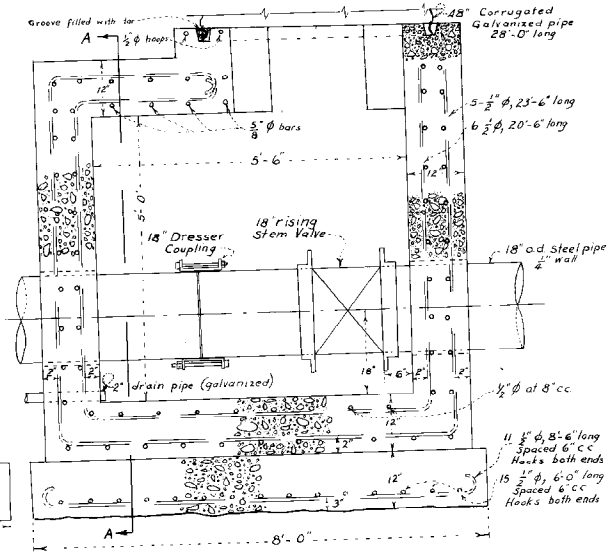 Groove filled with tar
48" Corrugated
Galvanized pipe
28'-0" long
A
½" φ hoops
12"
5/8" φ bars
5-½" φ, 23'-6" long
6 ½" φ, 20'-6" long
5'-6"
12"
5'-0"
18" Dresser
Coupling
18" rising
Stem Valve
18" o.d. Steel pipe
¼" wall
18"
2"
2"
6"
2"
2"
2" drain pipe (galvanized)
½" φ at 8" cc.
12"
2"
11 ½" φ, 8'-6" long
Spaced 6" cc
Hooks both ends
12"
15 ½" φ, 6'-0" long
Spaced 6" cc
Hooks both ends
3"
A
8'-0"